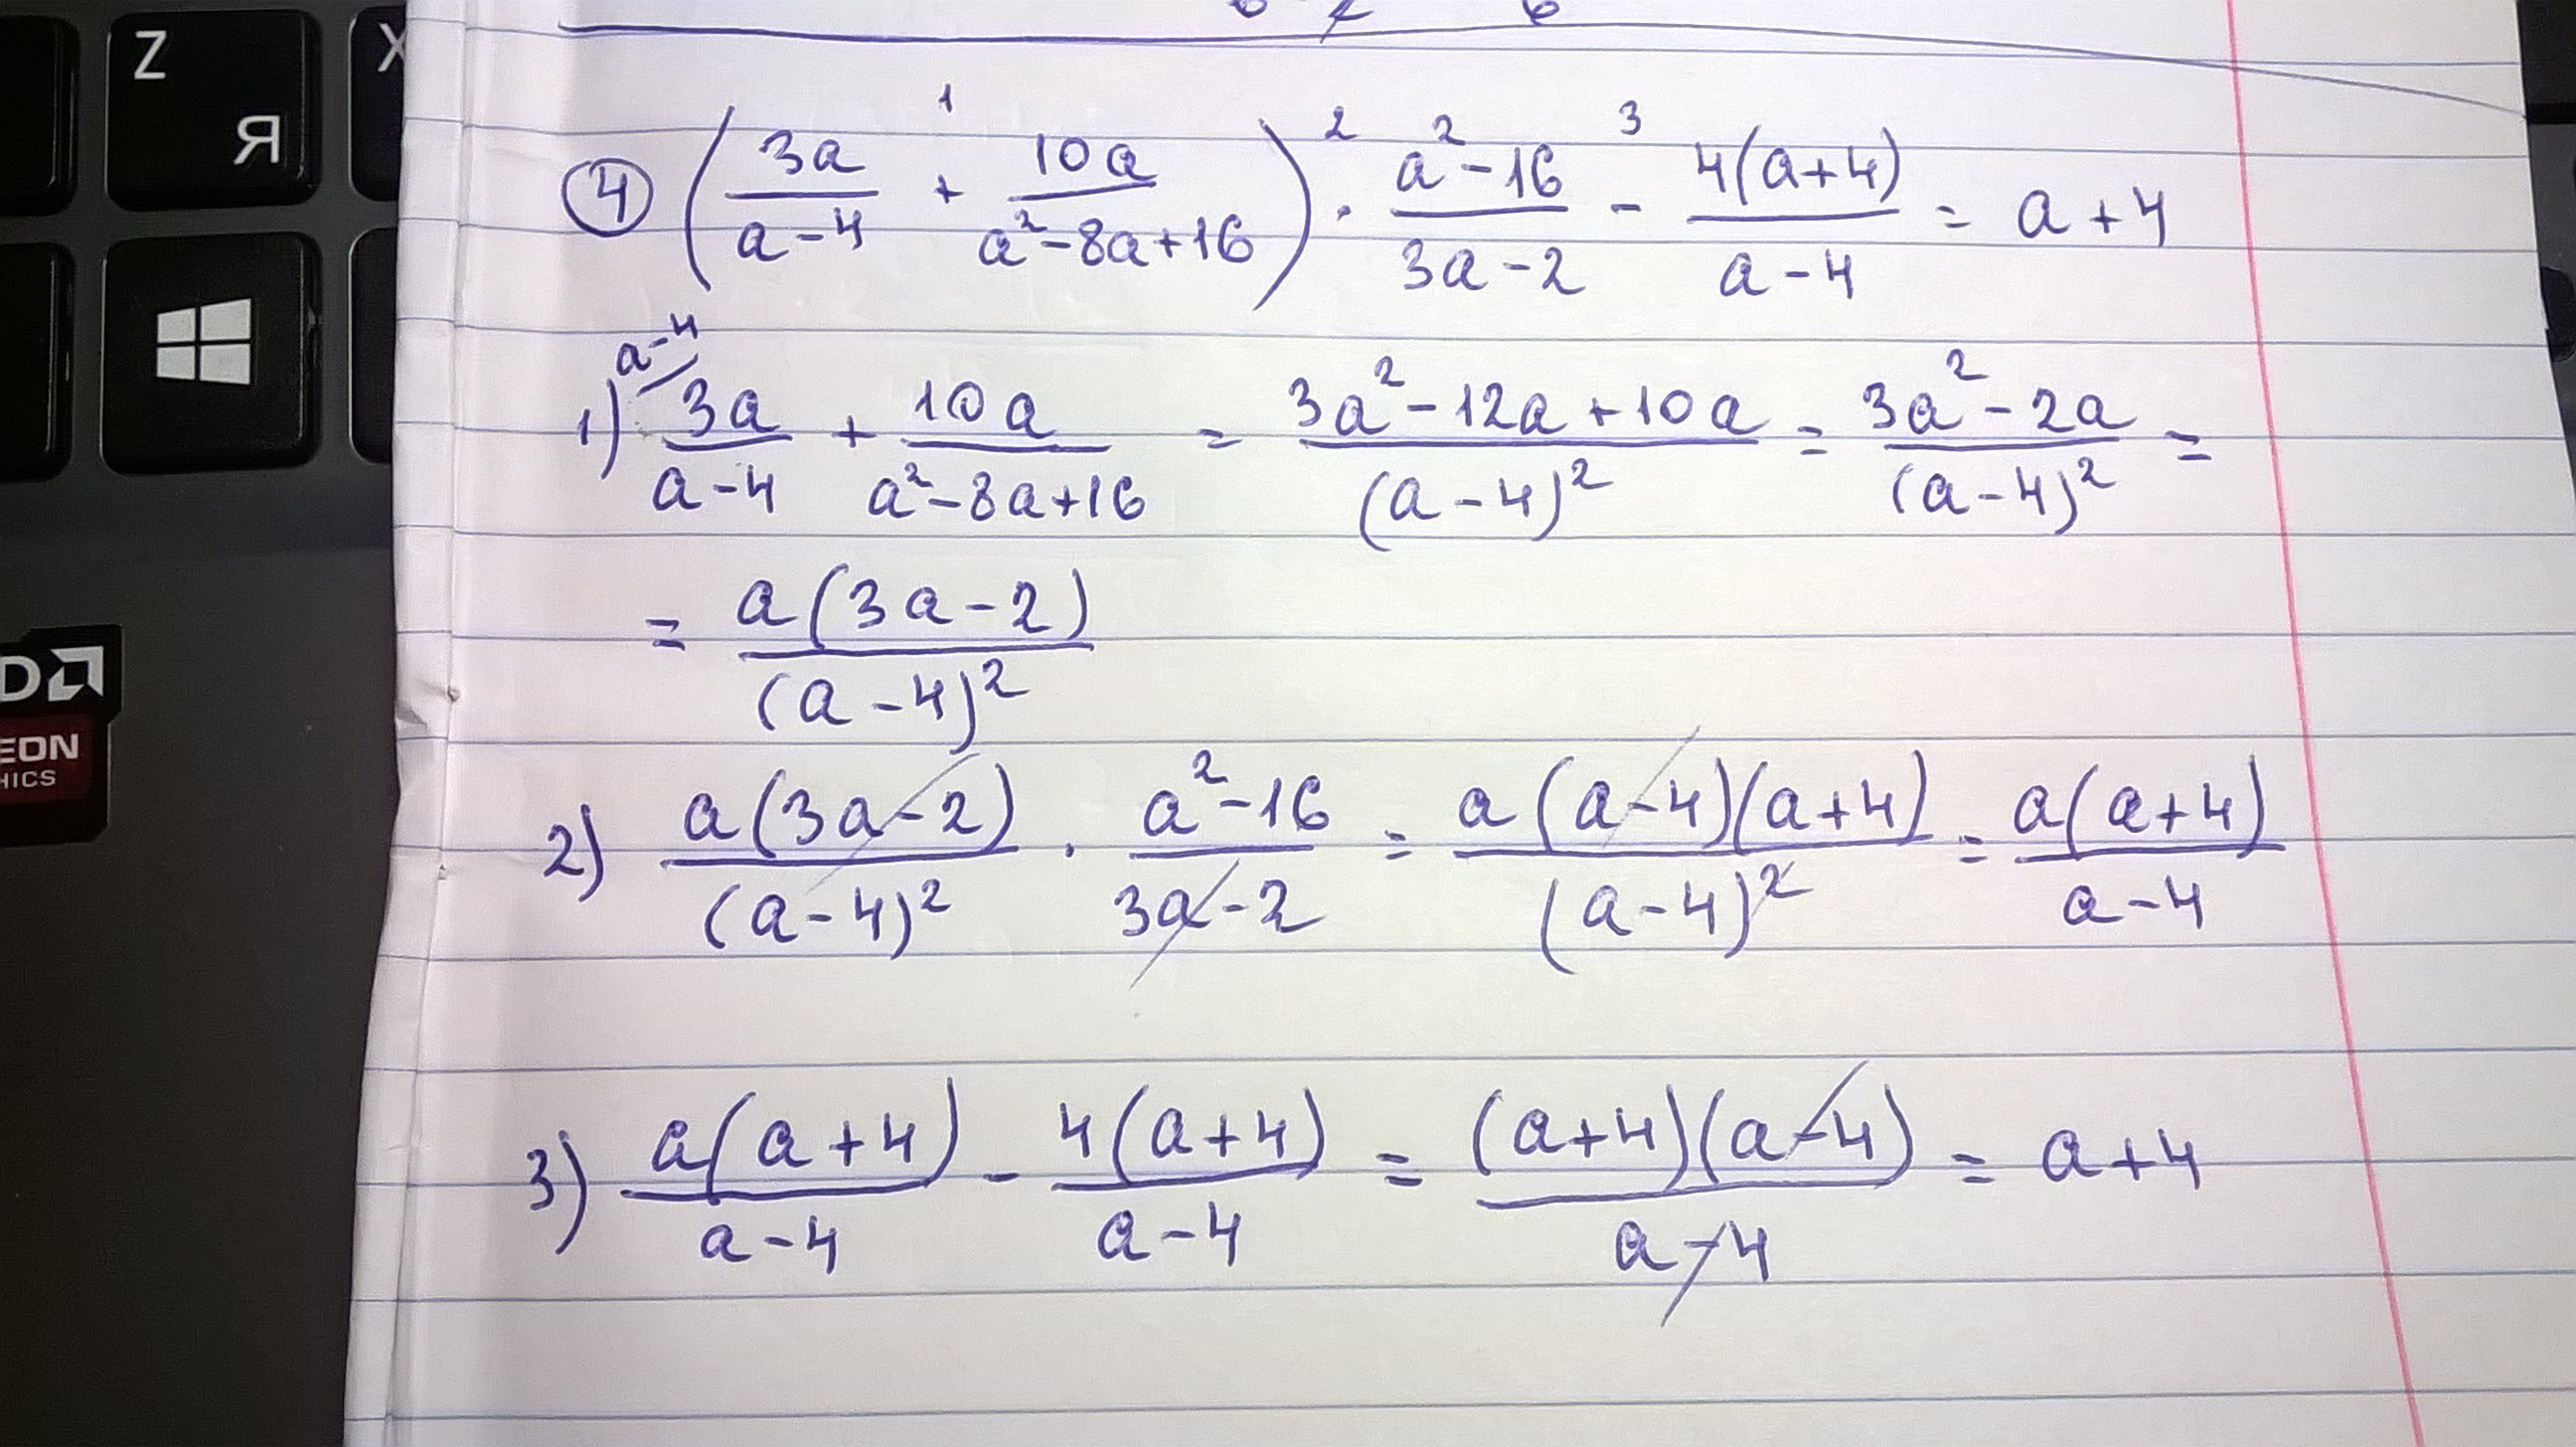 Z
Я
X
④ (3a/(a-4) + 10a/(a²-8a+16)) · (a²-16)/(3a-2) - 4(a+4)/(a-4) = a+4
1 2 3
a-4
1) 3a/(a-4) + 10a/(a²-8a+16) = (3a²-12a+10a)/(a-4)² = (3a²-2a)/(a-4)² =
= a(3a-2)/(a-4)²
2) a(3a-2)/(a-4)² · (a²-16)/(3a-2) = a(a-4)(a+4)/(a-4)² = a(a+4)/(a-4)
3) a(a+4)/(a-4) - 4(a+4)/(a-4) = (a+4)(a-4)/(a-4) = a+4
D
EON
HICS